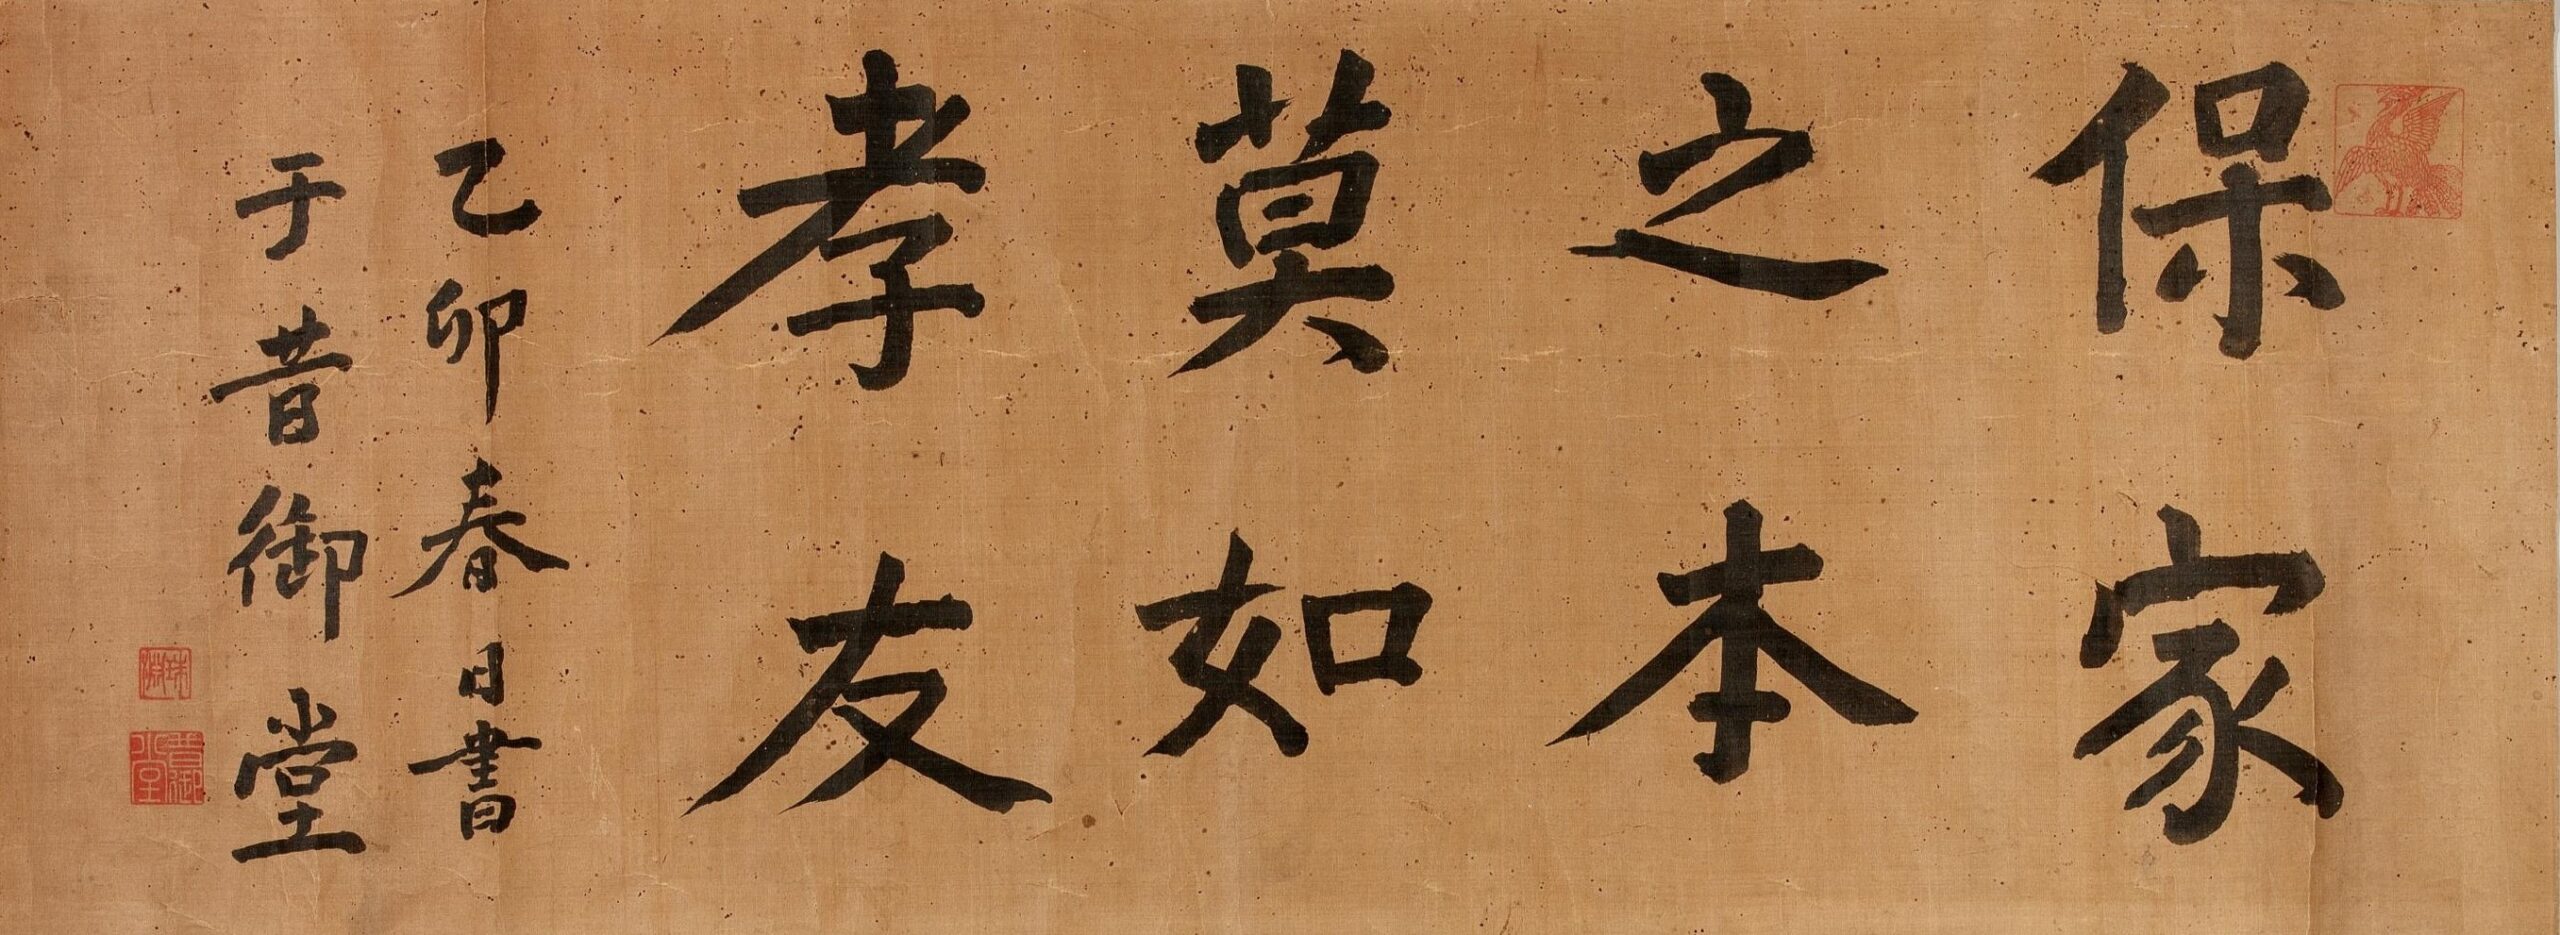 保家
之本
莫如
孝友
乙卯春日書
于昔御堂
昔御堂